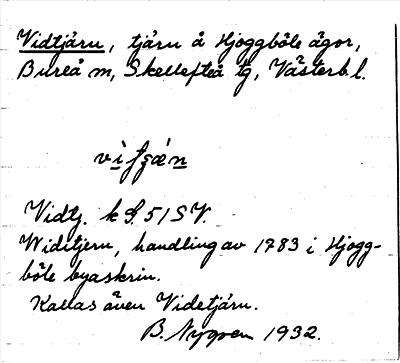 Vidtjärn, tjärn å Hjoggböle ägor,
Bureå sn, Skellefteå tg, Västerb l.
Vidtj. k S. 51 SV.
Widitjern, handling av 1783 i Hjogg-
böle byaskrin.
Kallas även Videtjärn.
B. Nygren 1932.